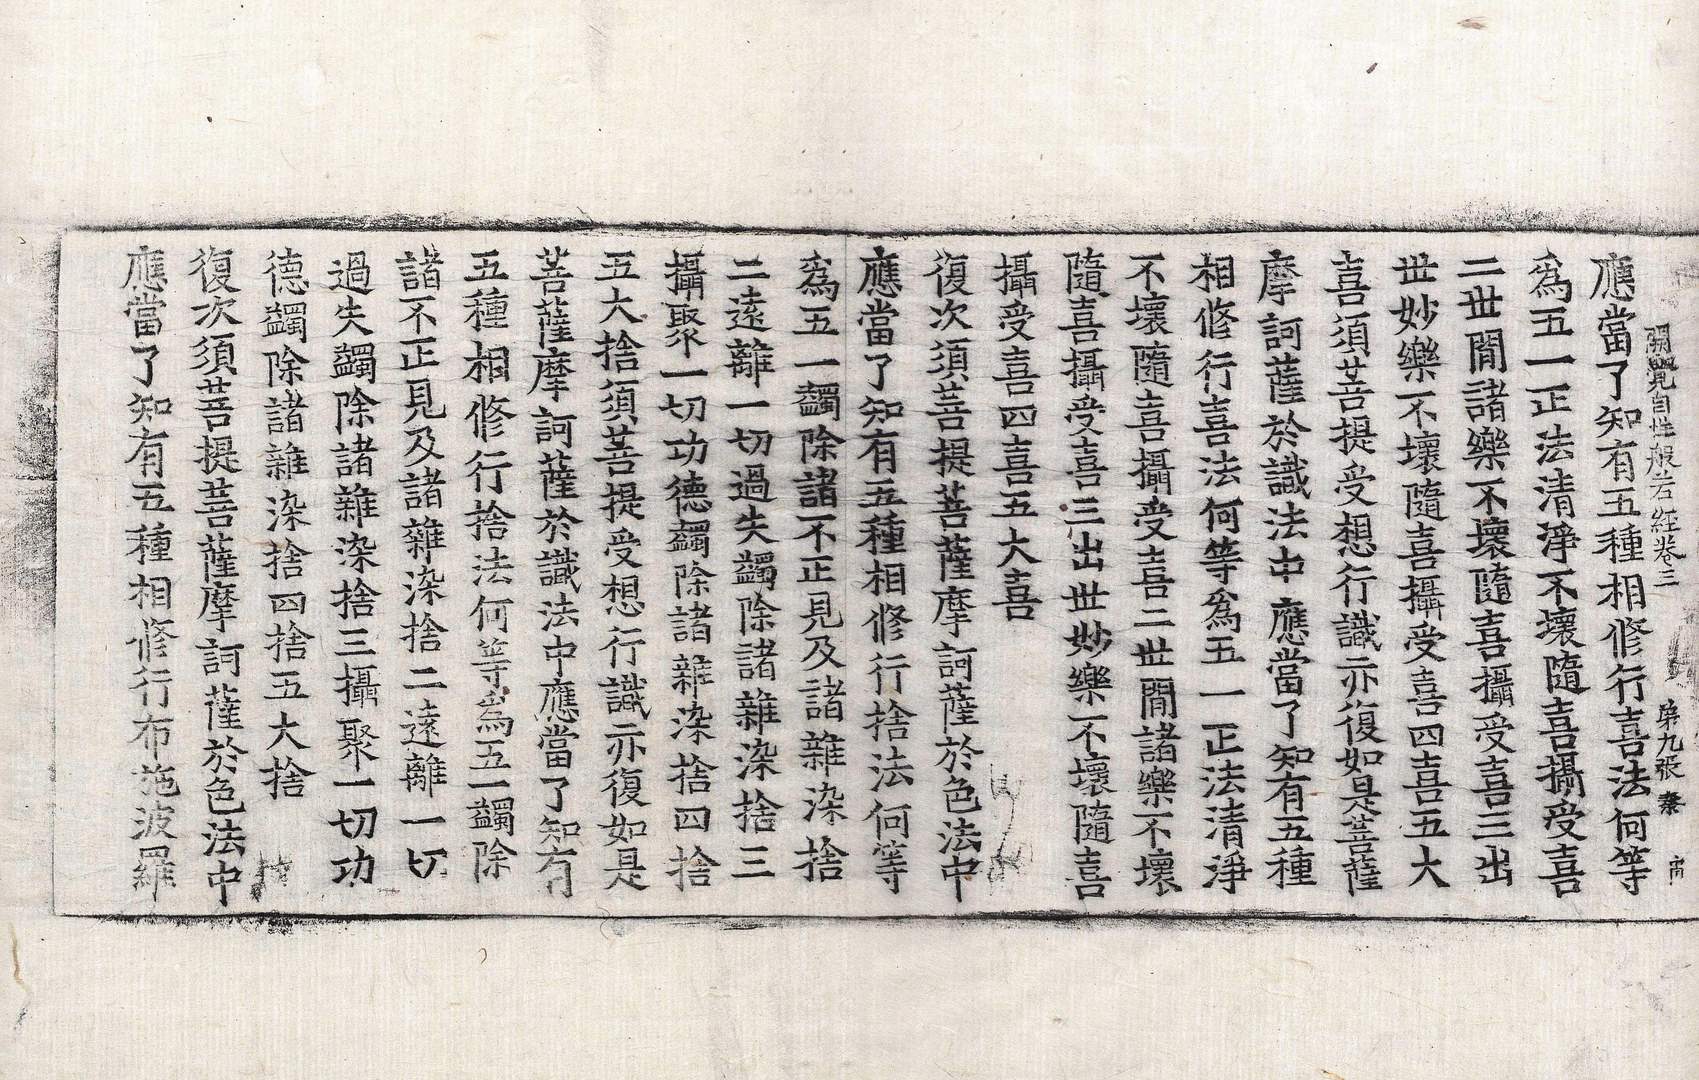 開覺自性般若經卷三 第九張 秦
應當了知有五種相修行喜法何等
爲五一正法清淨不壞隨喜攝受喜
二世間諸樂不壞隨喜攝受喜三出
世妙樂不壞隨喜攝受喜四喜五大
喜須菩提受想行識亦復如是菩薩
摩訶薩於識法中應當了知有五種
相修行喜法何等爲五一正法清淨
不壞隨喜攝受喜二世間諸樂不壞
隨喜攝受喜三出世妙樂不壞隨喜
攝受喜四喜五大喜
復次須菩提菩薩摩訶薩於色法中
應當了知有五種相修行捨法何等
爲五一蠲除諸不正見及諸雜染捨
二遠離一切過失蠲除諸雜染捨三
攝聚一切功德蠲除諸雜染捨四捨
五大捨須菩提受想行識亦復如是
菩薩摩訶薩於識法中應當了知有
五種相修行捨法何等爲五一蠲除
諸不正見及諸雜染捨二遠離一切
過失蠲除諸雜染捨三攝聚一切功
德蠲除諸雜染捨四捨五大捨
復次須菩提菩薩摩訶薩於色法中
應當了知有五種相修行布施波羅